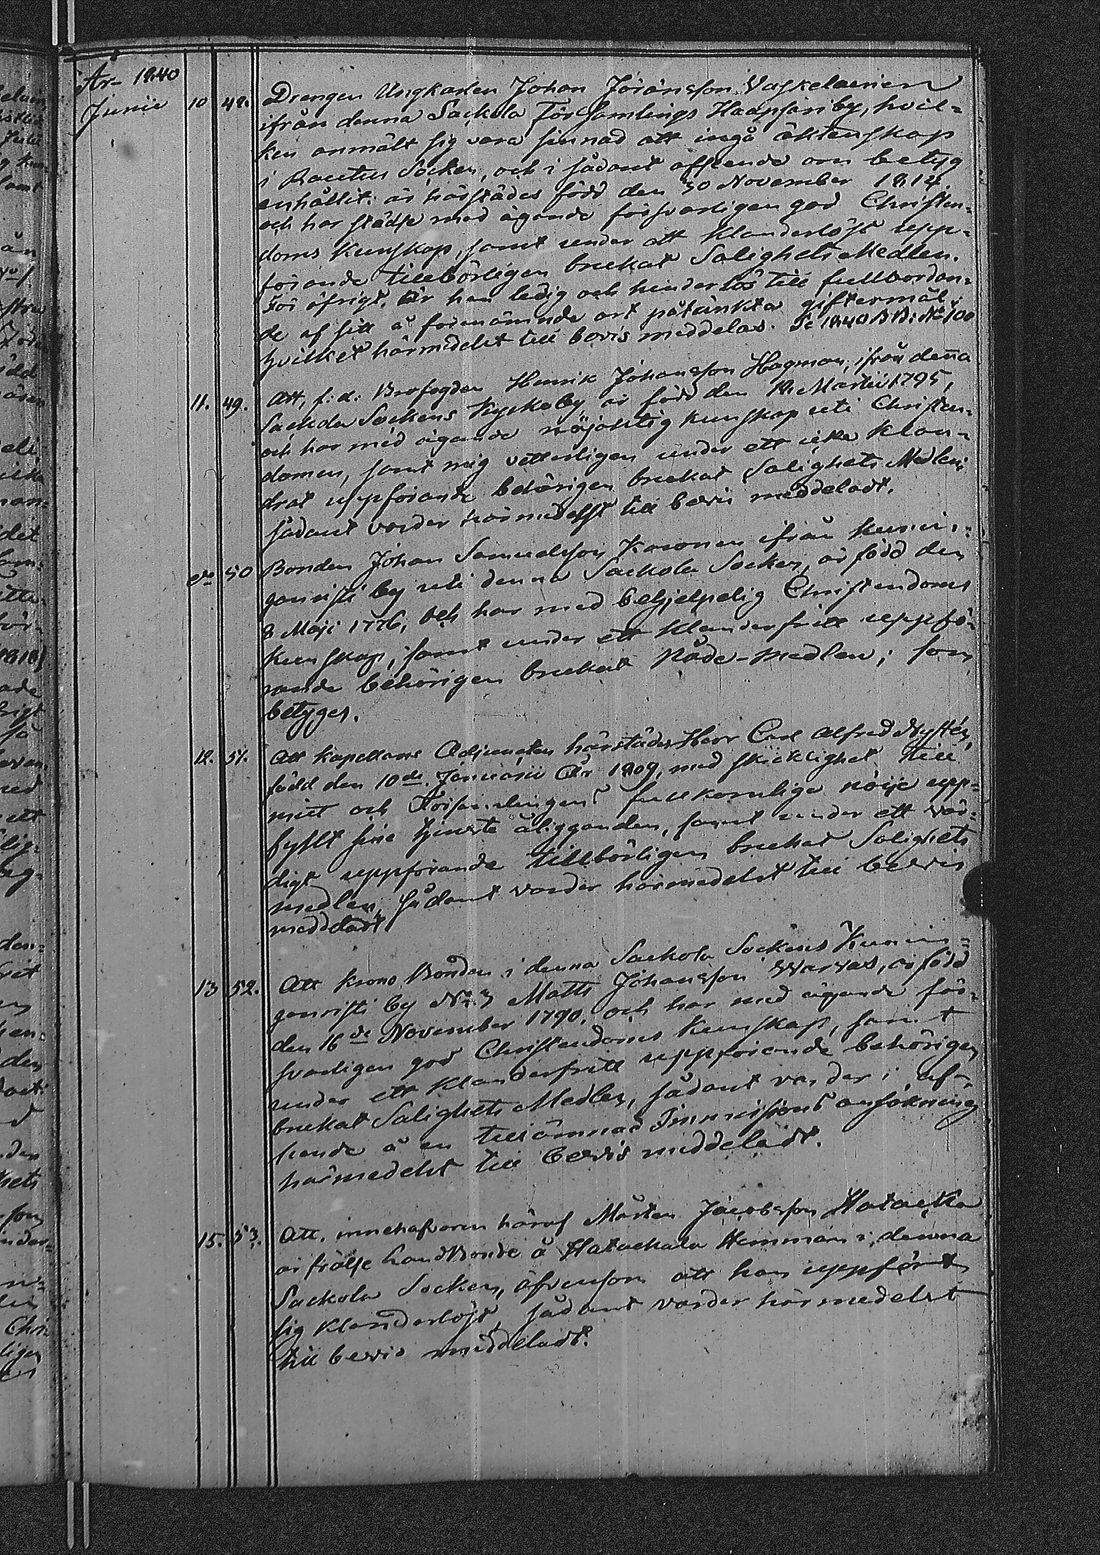 År 1840
Junii 10 48. Drengen Ungkarlen Johan Jöransson Vaskelainen
ifrån denna Sackola Församlings Haapsari by, hvil-
ken anmält sig vara sinnad att ingå äktenskap
i Rautus Socken, och i sådant afseende om betyg
anhållit: är härstädes född den 30 November 1814
och har städse med ägande försvarligen god Christen-
doms kunskap, samt under ett klanderlöst upp-
förande tillbörligen brukat Salighets Medlen.
För öfrigt är han ledig och hinderlös till fullbordan-
de af sitt å förenämnde ort påtänkta giftermål
hvilket härmedelst till bevis meddelas. 1840 No 100
11. 49. Att, f: d: Brofogden Henrik Johansson Hagman, ifrån denna
Sackola Sockens by är född den Martii 1795,
och har med ägande nöjaktig kunskap uti Christen-
domen, samt mig vetterligen under ett icke klan-
drat uppförande behörigen brukat Salighets Medlen
sådant varder härmedelst till bevis meddeladt.
do 50 Bonden Johan Samuelsson Karonen ifrån Kunin-
ganristi by uti denna Sackola Socken, är född den
8 Maji 1776, och har med behjelpelig Christendoms
kunskap, samt under ett klanderfritt uppfö-
rande behörigen brukat Nåde-Medlen; som
betyges.
12. 51. Att Kapellans Adjuncten härstädes Herr Carl Alfred Nystén,
född den 10de Januarii År 1809, med skicklighet till
mitt och Församlingens fullkomliga nöije upp-
fyllt sine tjenste åligganden, samt under ett vär-
digt uppförande tillbörligen brukat Salighets
medlen, sådant varder härmedelst till bevis
meddeladt
13 52. Att Krono Bonden i denna Sackola Sockens Kunin-
ganristi by No 3 Matts Johansson Warvas, är född
den 16de November 1790, och har med ägande för-
svarligen god Christendoms kunskap, samt
under ett klanderfritt uppförande behörigen
brukat Salighets Medlen, sådant varder i af-
seende å en tillämnad Immissions ansökning
härmedelst till bevis meddeladt.
15. 53. Att, innehafvaren häraf Mårten Jacobsson Hatacka
är frälse Landbonde å Hatackala Hemman i denna
Sackola Socken, äfvensom att han uppfört
sig klanderlöst, sådant varder härmedelst
till bevis meddeladt.